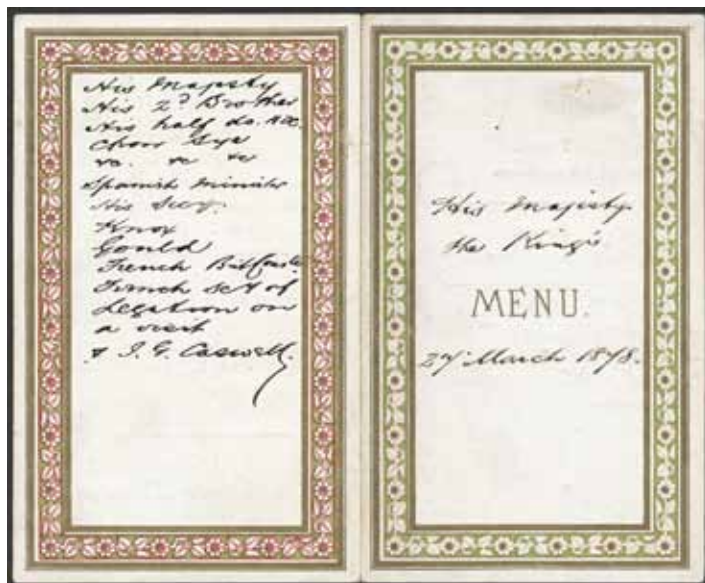 His Majesty
His 2d Brother
His half do.
Chow Sye
Spanish Minister
His Secy.
Knox
Gould
French
French Sec of
Legation on
a visit
& J. G. Caswell.
His Majesty
the King's
MENU.
27 March 1878.